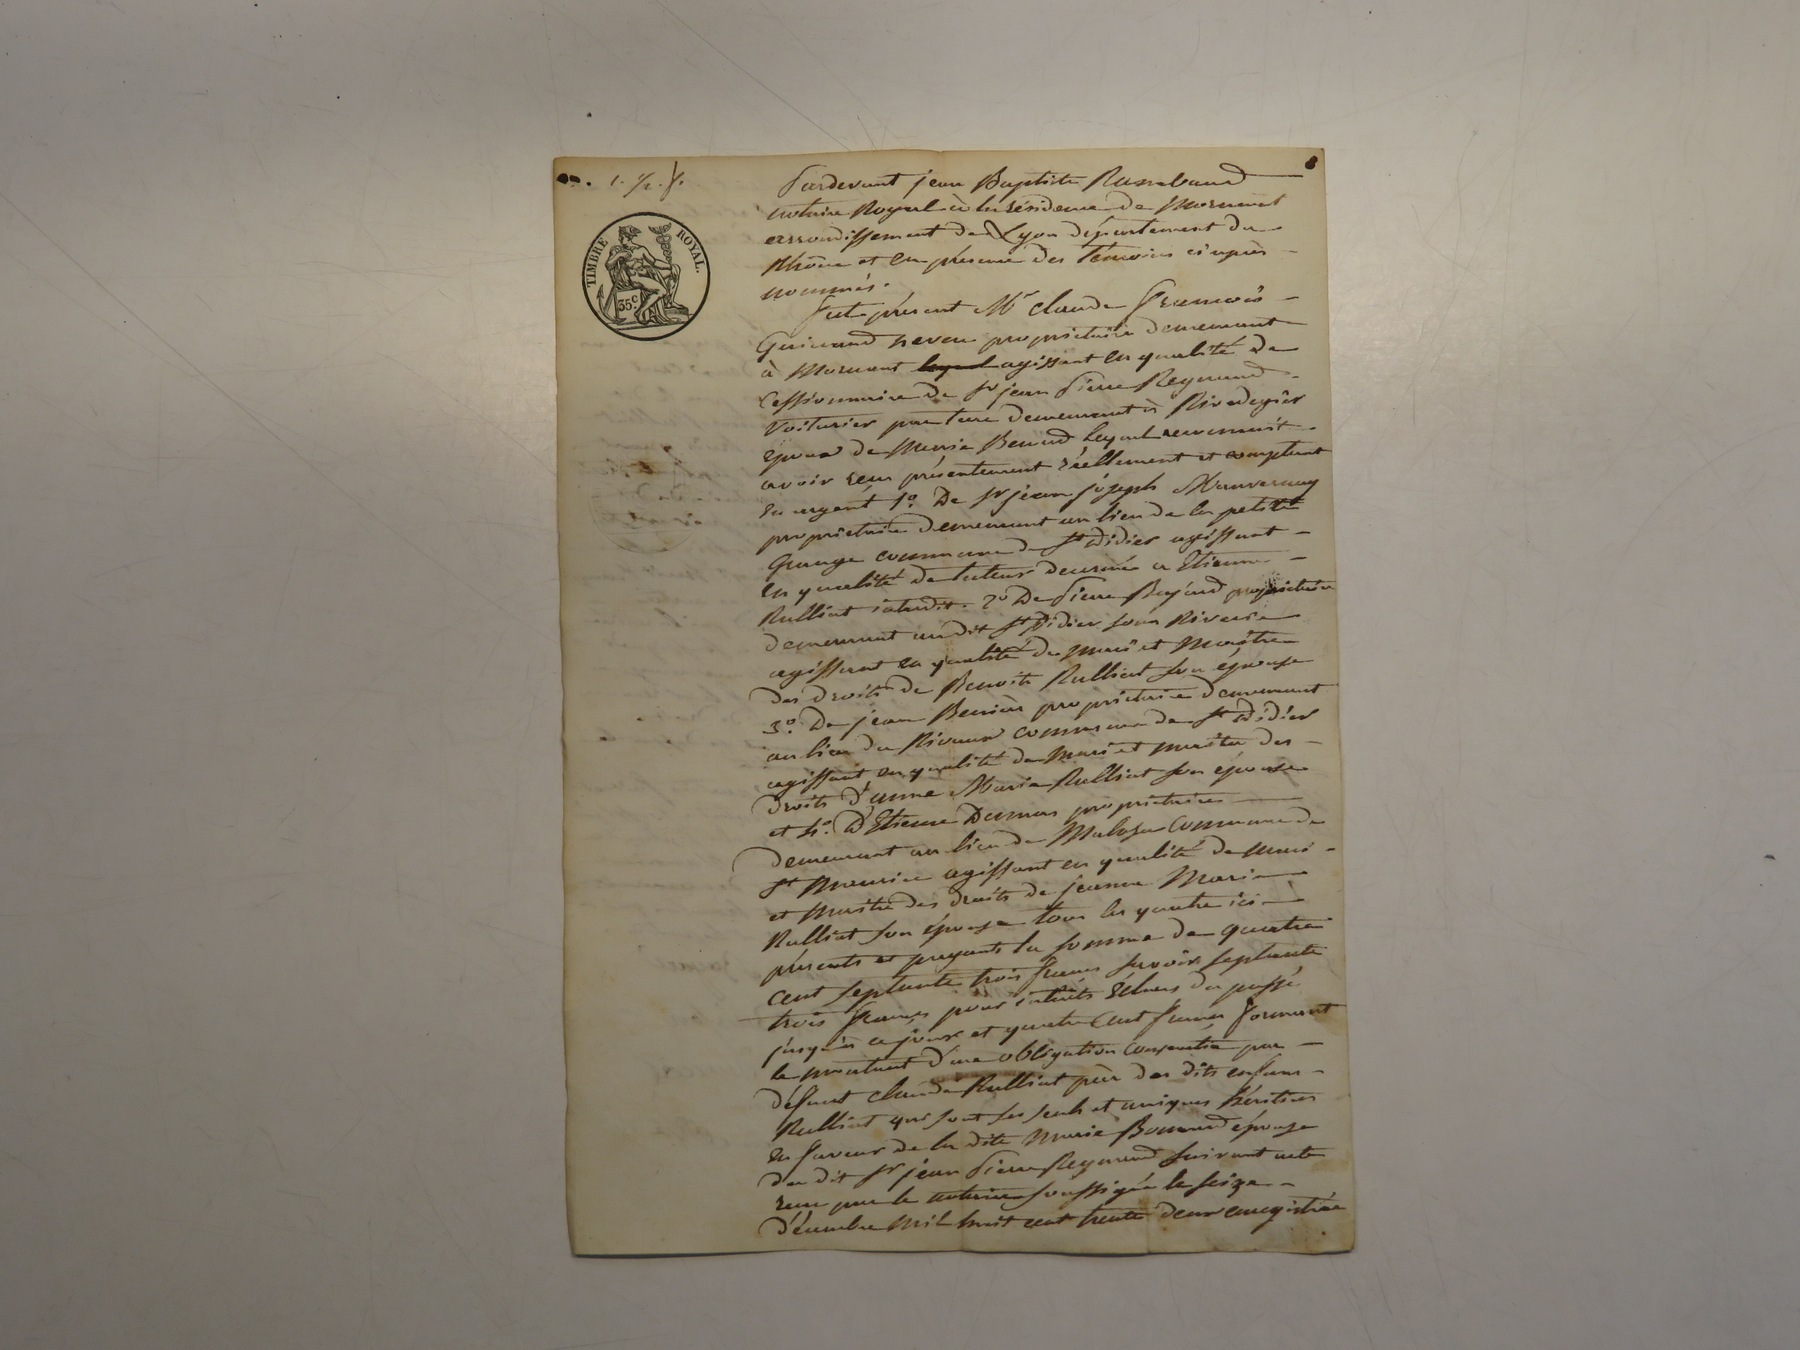 1. 1/2. f.
TIMBRE ROYAL.
35c
Pardevant jean Baptiste Rambaud
notaire Royal à la résidence de Mornant
arrondissement de Lyon département du
Rhône et en présence des témoins ci après
nommés.
fut présent Mr claude François
Guinand neveu propriétaire demeurant
à Mornant lequel agissant en qualité de
Cessionnaire de Sr jean Pierre Reymond
Voiturier par terre demeurant à Rivedegier
époux de Marie Bonnard lequel reconnait
avoir reçu présentement réellement et comptant
en argent 1o. De Sr jean joseph
propriétaire demeurant au lieu de la petite
Grange commune de St Didier agissant
en qualité de tuteur décerné a Etienne
Rulliat interdit. 2o De Pierre Bajard propriétaire
demeurant au dit St Didier sous Riverie
agissant en qualité de mari et Maitre
des droits de Benoite Rulliat son épouse
3o. De jean propriétaire demeurant
au lieu du Rivaux commune de St Didier
agissant en qualité de Mari et maitre des
droits d'anne Marie Rulliat son épouse
et 4o. D'Etienne Dumas propriétaire
demeurant au lieu de commune de
St Maurice agissant en qualité de mari
et Maitre des droits de jeanne Marie
Rulliat son épouse tous les quatre ici
présents et payants la somme de quatre
cent septante trois francs savoir septante
trois francs pour intérêts échus du passé
jusqu'à ce jour et quatre Cent francs formant
le montant d'une obligation consentie par
défunt claude Rulliat père des dits enfans
Rulliat qui sont ses seuls et uniques héritiers
en faveur de la dite Marie Bonnard épouse
du dit Sr jean Pierre Reymond suivant acte
reçu par le notaire soussigné le seize
décembre mil huit cent trente deux enregistrée